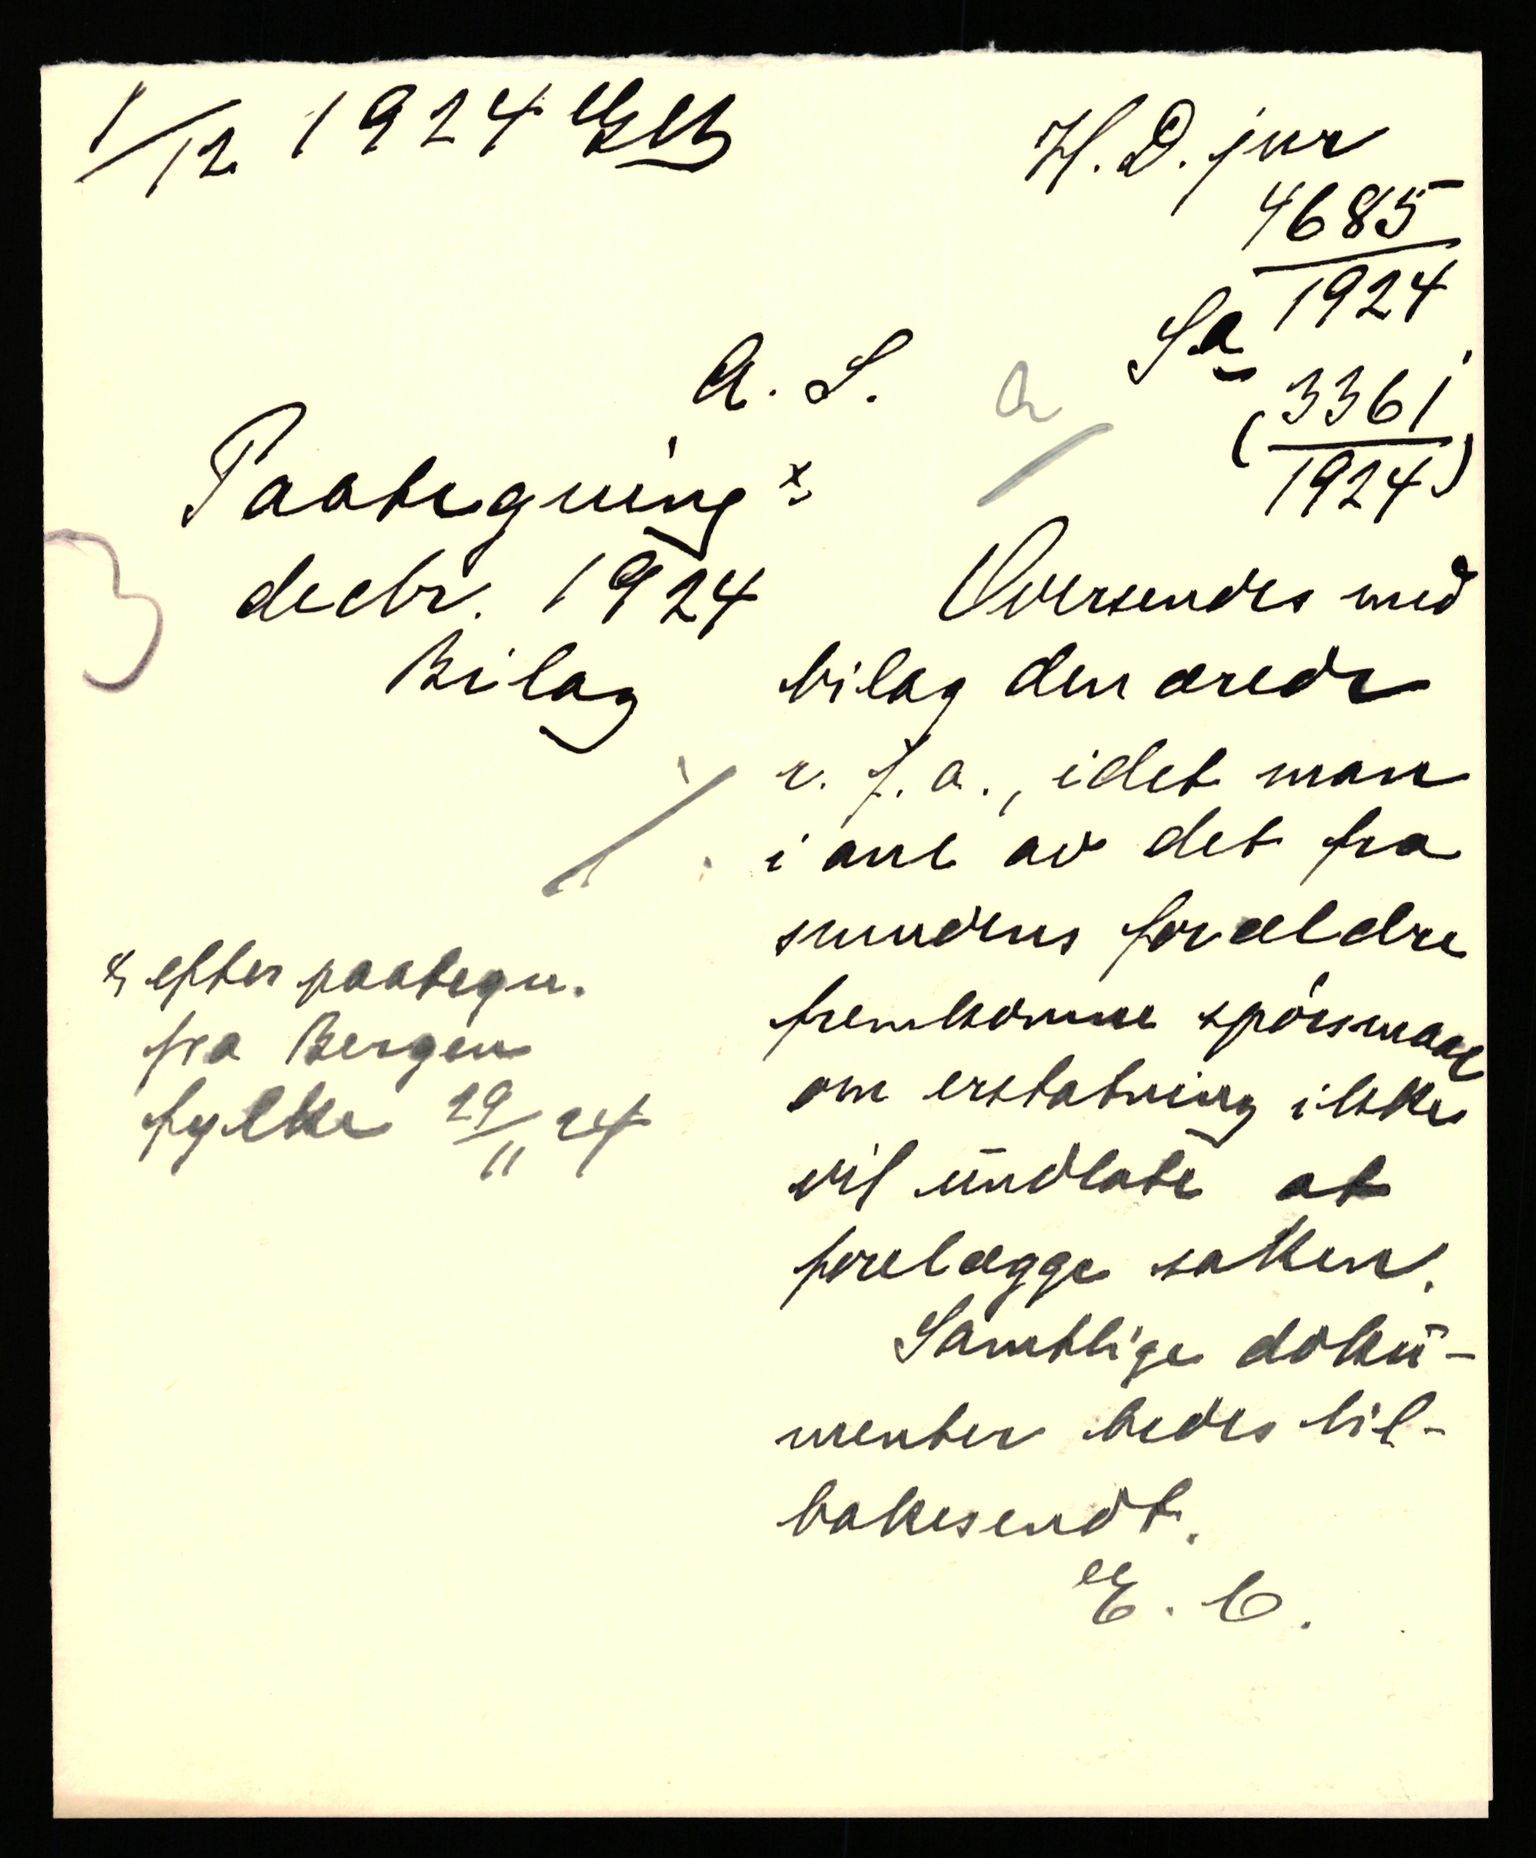 1/12 1924
H. D. jur
4685
1924
Sa
(3361
1924)
A. S.
a
Paategning x
decbr. 1924
Bilag
3
Oversendes med
bilag den ærede
r. f. a., idet man
i anl av det fra
smudens forældre
fremkomne spörsmaal
om erstatning ikke
vil ündlate at
forelægge saken.
Samtlige dokü-
menter bedes til-
bakesendt.
E. C.
x efter paategn.
fra Bergen
fylke 29/11 24